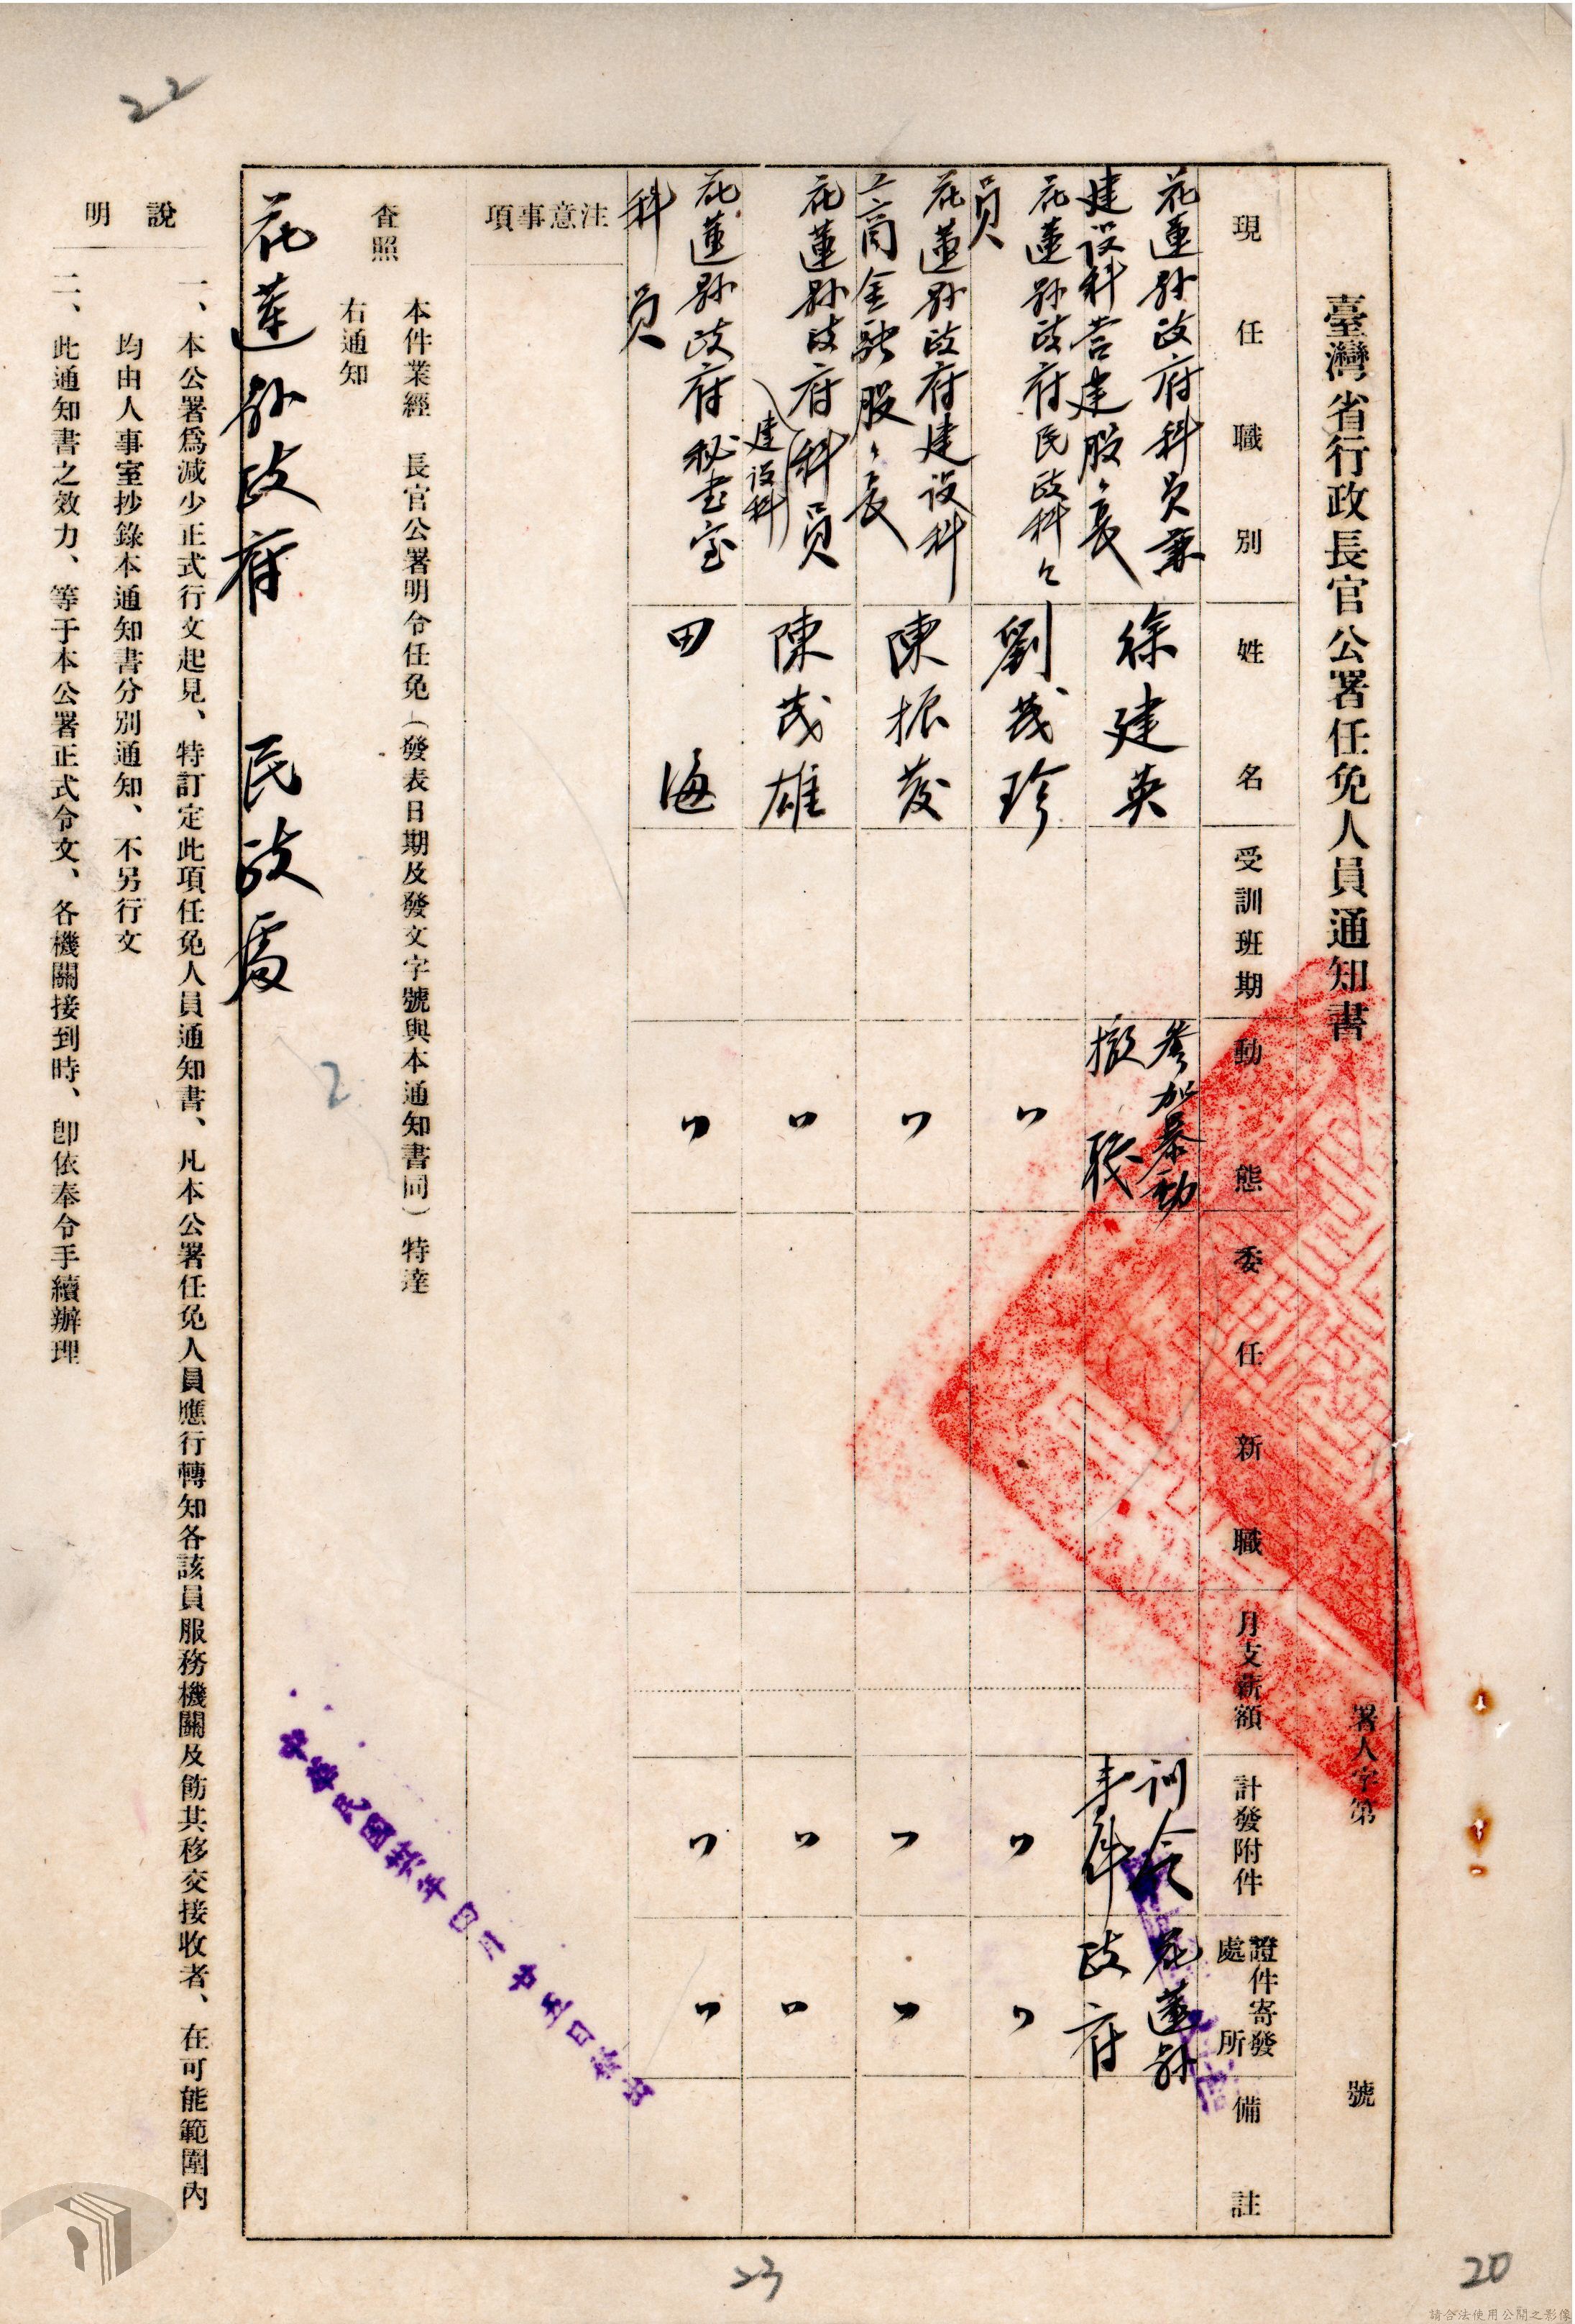 臺灣省行政長官公署任免人員通知書
署人字第 號
現任職別
姓名
受訓班期
動態
委任新職
月支薪額
計發附件
證件寄發處所
備註
花蓮縣政府科員兼
建設科营建股々長
徐建英
參加暴動
撤職
訓令
壹件
花蓮縣
政府
花蓮縣政府民政科々
員
劉茂珍
〃
〃
〃
花蓮縣政府建设科
工商金融股々長
陳振发
〃
〃
〃
花蓮縣政府(科員
建设科)
陳茂雄
〃
〃
〃
花蓮縣政府秘書室
科員
田海
〃
〃
〃
注意事項
本件業經 長官公署明令任免(發表日期及發文字號與本通知書同)特達
查照
右通知
花蓮縣政府 民政處
中華民國卅六年四月廿五日
說明
一、本公署爲減少正式行文起見、特訂定此項任免人員通知書、凡本公署任免人員應行轉知各該員服務機關及飭其移交接收者、在可能範圍內
均由人事室抄錄本通知書分別通知、不另行文
二、此通知書之效力、等于本公署正式令文、各機關接到時、卽依奉令手續辦理
22
2
23
20
請合法使用公開之影像